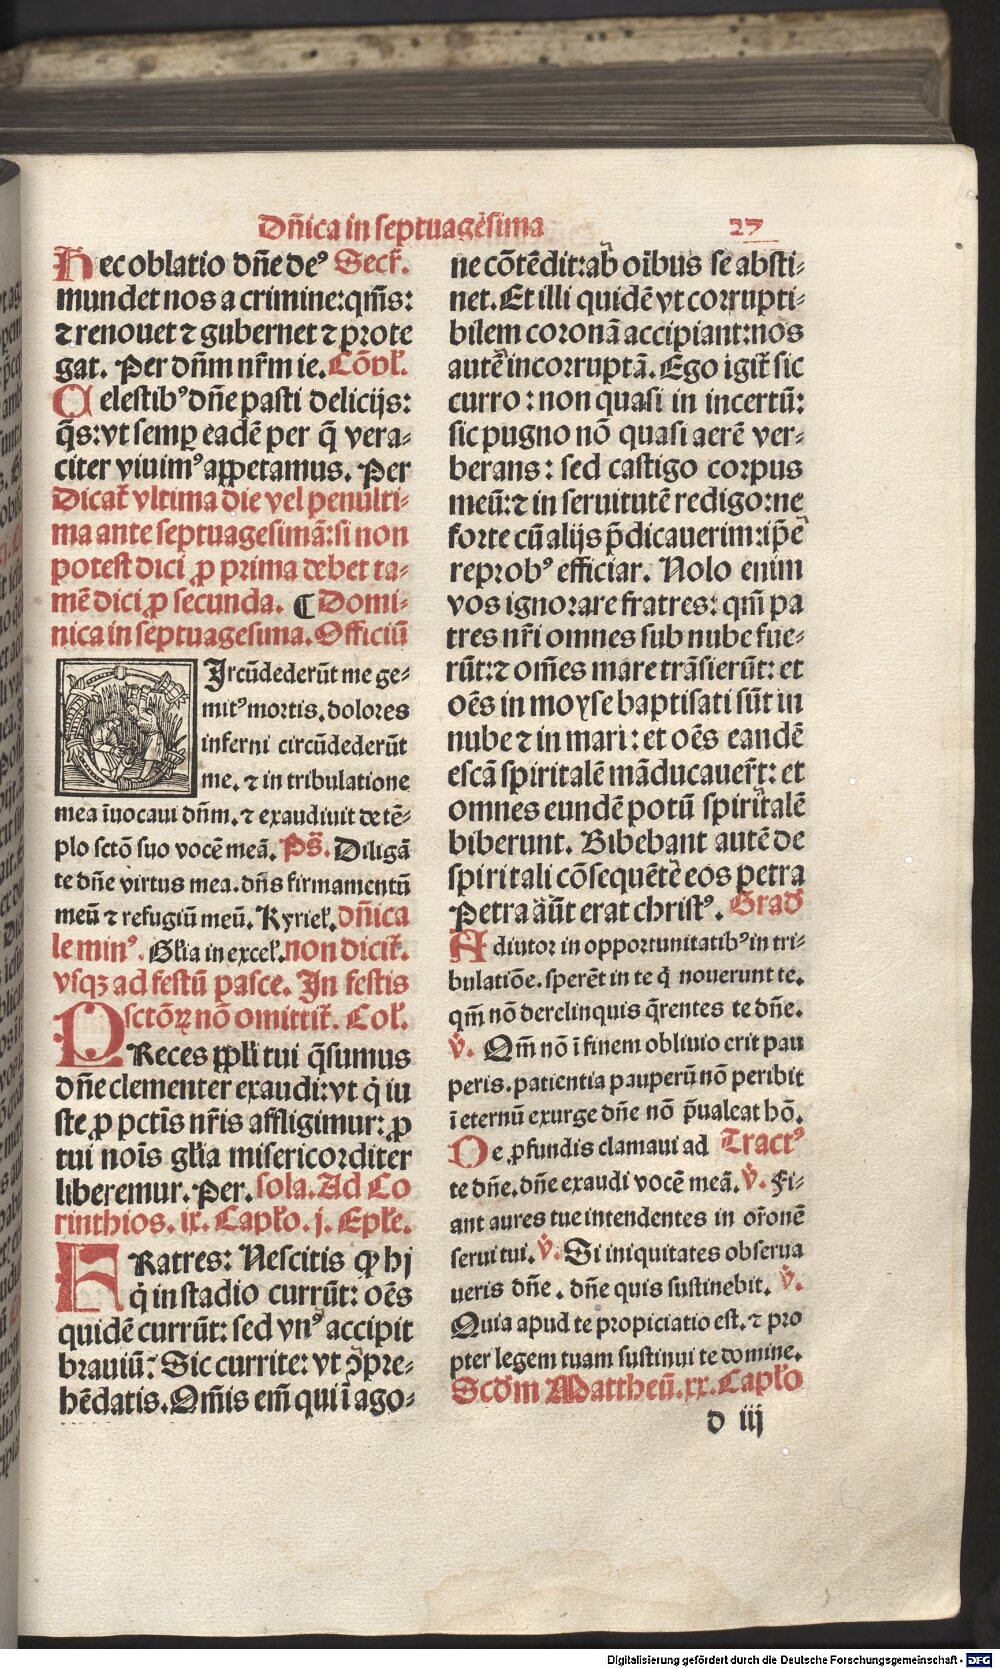 Dñica in septuagesima 27
Hec oblatio dñe deꝰ Secr̃.
mundet nos a crimine: qm̃s:
⁊ renouet ⁊ gubernet ⁊ prote
gat. Per dñm nr̃m ie. Cõpl̃.
Celestibꝰ dñe pasti delicijs:
q̃s: vt semꝑ eadẽ per q̃ vera-
citer viuimꝰ appetamus. Per
Dicat̃ vltima die vel penulti-
ma ante septuagesimã: si non
potest dici ꝓ prima debet ta-
mẽ dici ꝓ secunda. ¶ Domi-
nica in septuagesima. Officiũ
CIrcũdederũt me ge-
mitꝰ mortis. dolores
inferni circũdederũt
me. ⁊ in tribulatione
mea ĩuocaui dñm. ⁊ exaudiuit de tẽ-
plo sctõ suo vocẽ meã. Ps̃. Diligã
te dñe virtus mea. dñs firmamentũ
meũ ⁊ refugiũ meũ. Kyriel̃. dñica
le minꝰ. Gl̃ia in excel̃. non dicit̃.
vsqꝫ ad festũ pasce. In festis
sctõꝝ nõ omittit̃. Col̃.
PReces ppl̃i tui q̃sumus
dñe clementer exaudi: vt q̃ iu
ste ꝓ pctĩs nr̃is affligimur: ꝓ
tui noĩs gl̃ia misericorditer
liberemur. Per. sola. Ad Co
rinthios. ix. Capl̃o. j. Epl̃e.
FRatres: Nescitis ꝙ hj
q̃ in stadio currũt: oẽs
quidẽ currũt: sed vnꝰ accipit
brauiũ: Sic currite: vt ꝯpre-
hẽdatis. Om̃is em̃ qui ĩ ago-
ne cõtẽdit: ab oĩbus se absti-
net. Et illi quidẽ vt corrupti-
bilem coronã accipiant: nos
autẽ incorruptã. Ego igit̃ sic
curro: non quasi in incertũ:
sic pugno nõ quasi aerẽ ver-
berans: sed castigo corpus
meũ: ⁊ in seruitutẽ redigo: ne
forte cũ alijs p̃dicauerim: ip̃e
reprobꝰ efficiar. Nolo enim
vos ignorare fratres: qm̃ pa
tres nr̃i omnes sub nube fue-
rũt: ⁊ om̃es mare trãsierũt: et
oẽs in moyse baptisati sũt in
nube ⁊ in mari: et oẽs eandẽ
escã spiritalẽ mãducauer̃t: et
omnes eundẽ potũ spiritalẽ
biberunt. Bibebant autẽ de
spiritali cõsequẽte eos petra
Petra aũt erat christꝰ. Grad̃
Adiutor in opportunitatibꝰ in tri-
bulatiõe. sperẽt in te q̃ nouerunt te.
qm̃ nõ derelinquis q̃rentes te dñe.
v̄. Qm̃ nõ ĩ finem obliuio erit pau
peris. patientia pauperũ nõ peribit
ĩ eternũ exurge dñe nõ p̃ualeat hõ.
De ꝓfundis clamaui ad Tractꝰ
te dñe. dñe exaudi vocẽ meã. v̄. Fi-
ant aures tue intendentes in or̃onẽ
serui tui. v̄. Si iniquitates obserua
ueris dñe. dñe quis sustinebit. v̄.
Quia apud te propiciatio est. ⁊ pro
pter legem tuam sustinui te domine.
Scd̃m Mattheũ. xx. Capl̃o
d iij
Digitalisierung gefördert durch die Deutsche Forschungsgemeinschaft - DFG